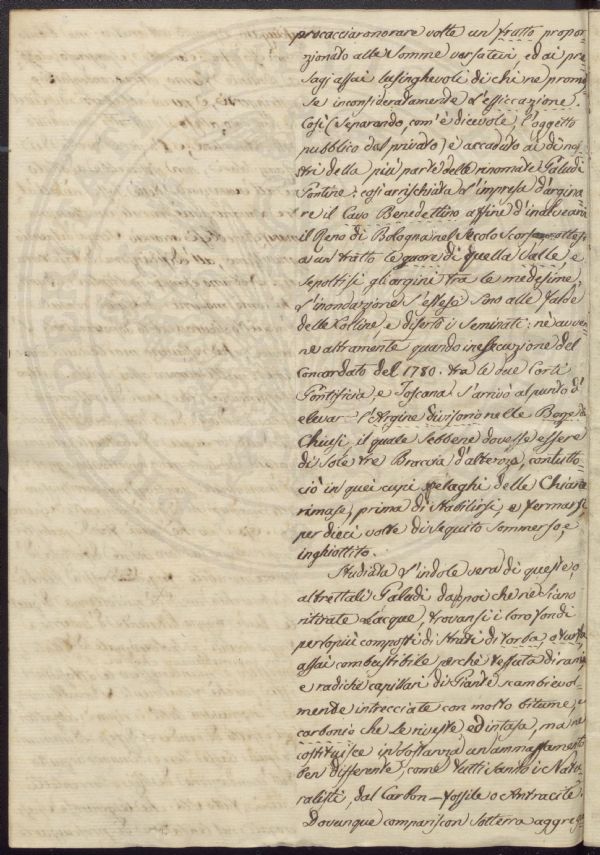 procacciaron rare volte un frutto propor-
zionato alle somme versatevi, ed ai pre-
sagi assai lusinghevoli di chi ne promi-
se inconsideratamente l'essiccazione.
Così (separando, com'è dicevole, l'oggetto
pubblico dal privato) è accaduto ai dì no-
stri della più parte delle rinomate Paludi
Pontine: così arrischiata l'impresa d'argina-
re il Cavo Benedettino affine d'inalveare
il Reno di Bologna nel Secolo scorso,
a un tratto le gore di quella Valle e
sepoltisi gli argini tra le medesime,
l'inondazione s'estese sino alle falde
delle Colline, e disertò i seminati: nè avven-
ne altramente quando in esecuzione del
Concordato del 1780. tra le due Corti
Pontificia, e Toscana s'arrivò al punto d'
elevar l'Argine divisorio nelle Bozze di
Chiusi, il quale sebbene dovesse essere
di sole tre Braccia d'altezza, contutto-
ciò in quei cupi pelaghi delle Chiane
rimase, prima di stabilirsi, e fermarsi,
per dieci volte di seguito sommerso, e
inghiottito.
Studiata l'indole vera di queste, o
altrettali Paludi dappoi che ne siano
ritirate l'acque, trovansi i loro fondi
perlopiù composti di strati di torba, o turfa,
assai combustibile perchè tessuta di rami,
e radiche capillari di Piante scambievol-
mente intrecciate con molto bitume, e
carbonio che le riveste, ed intasa, ma ne
costituisce in sostanza un ammassamento
ben differente, come tutti sanno i Natu-
ralisti, dal Carbon-fossile o Antracite.
Dovunque compariscon sotterra aggrega-